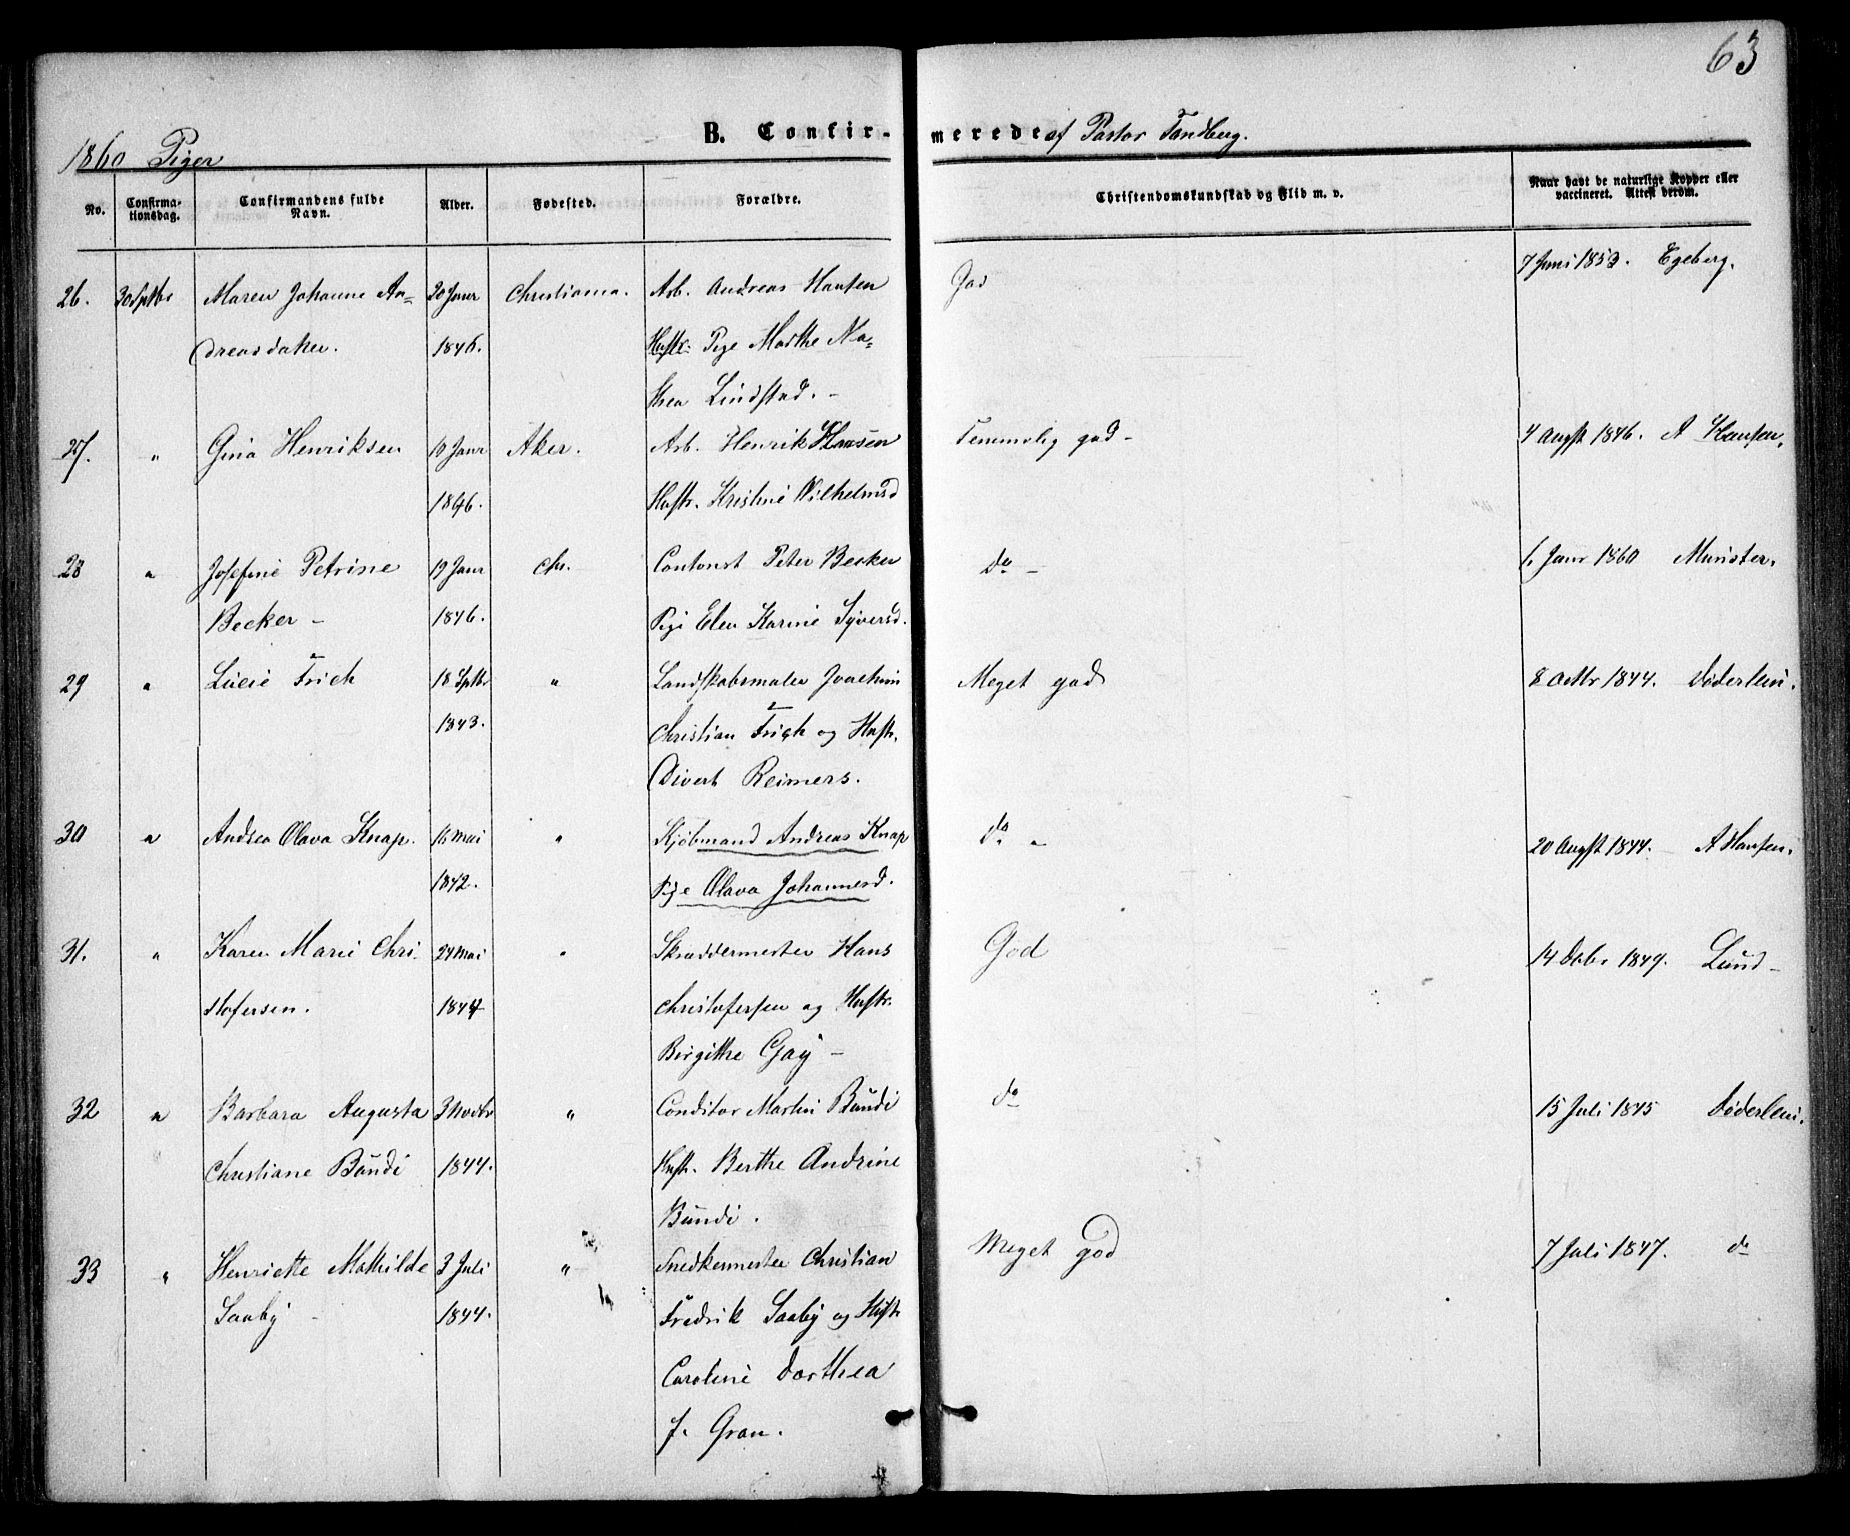 63
1860 Piger B. Confirmerede af Pastor Tandberg.
No. Confirmationsdag. Confirmandens fulde Navn. Alder. Fødested. Forældre. Christendomskundskab og Flid m. v. Naar havt de naturlige Kopper eller vaccineret. Attest derom.
26. 30 Sptbr Maren Johanne An- 20 Janr Christiania. Arb. Andreas Hansen God 7 Juni 1853. Egeberg.
dreasdatter. 1846. Hustr: Pige Marthe Ma-
thea Lindstad. -
27. " Gina Henriksen 10 Janr Aker. Arb. Henrik Hansen Temmelig god - 4 Augst 1846. A Hansen.
1846. Hustr. Kristine Wilhelmsd
28 " Josefine Petrine 19 Janr Chr. Contorist Peter Becker do - 6 Janr 1860 Munster.
Becker - 1846. Pige Elen Karine Syversd.
29 " Lucie Frich 18 Sptbr " Landskabsmaler Joachim Meget god 8 Octbr 1844. Døderlein.
1843. Christian Frich og Hustr.
Divert Reimers.
30 " Andrea Olava Knap. 16 Mai " Kjøbmand Andreas Knap do " 20 Augst 1844. A Hansen.
1842. Pige Olava Johannesd.
31. " Karen Marie Chri- 24 Mai " Skræddermester Hans God 14 Dcbr 1847. Lund -
stofersen. 1844 Christofersen og Hustr.
Birgitte Gay -
32 " Barbara Augusta 3 Novbr " Conditor Martin Bundi do 15 Juli 1845 Døderlein.
Christiane Bundi 1844. Hustr. Berthe Andrine
Bundi.
33 " Henriette Mathilde 3 Juli " Snedkermester Christian Meget god 7 Juli 1847. do
Saaby - 1844. Fredrik Saaby og Hustr
Caroline Dorthea
J. Gran.